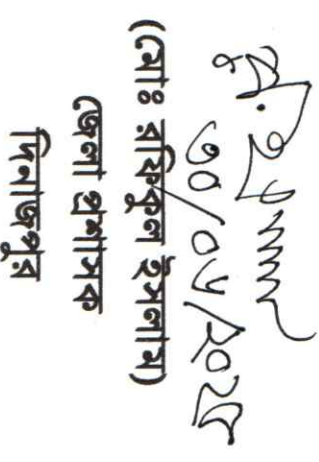 ৩০/০৬/২০২৫
(মোঃ রফিকুল ইসলাম)
জেলা প্রশাসক
দিনাজপুর